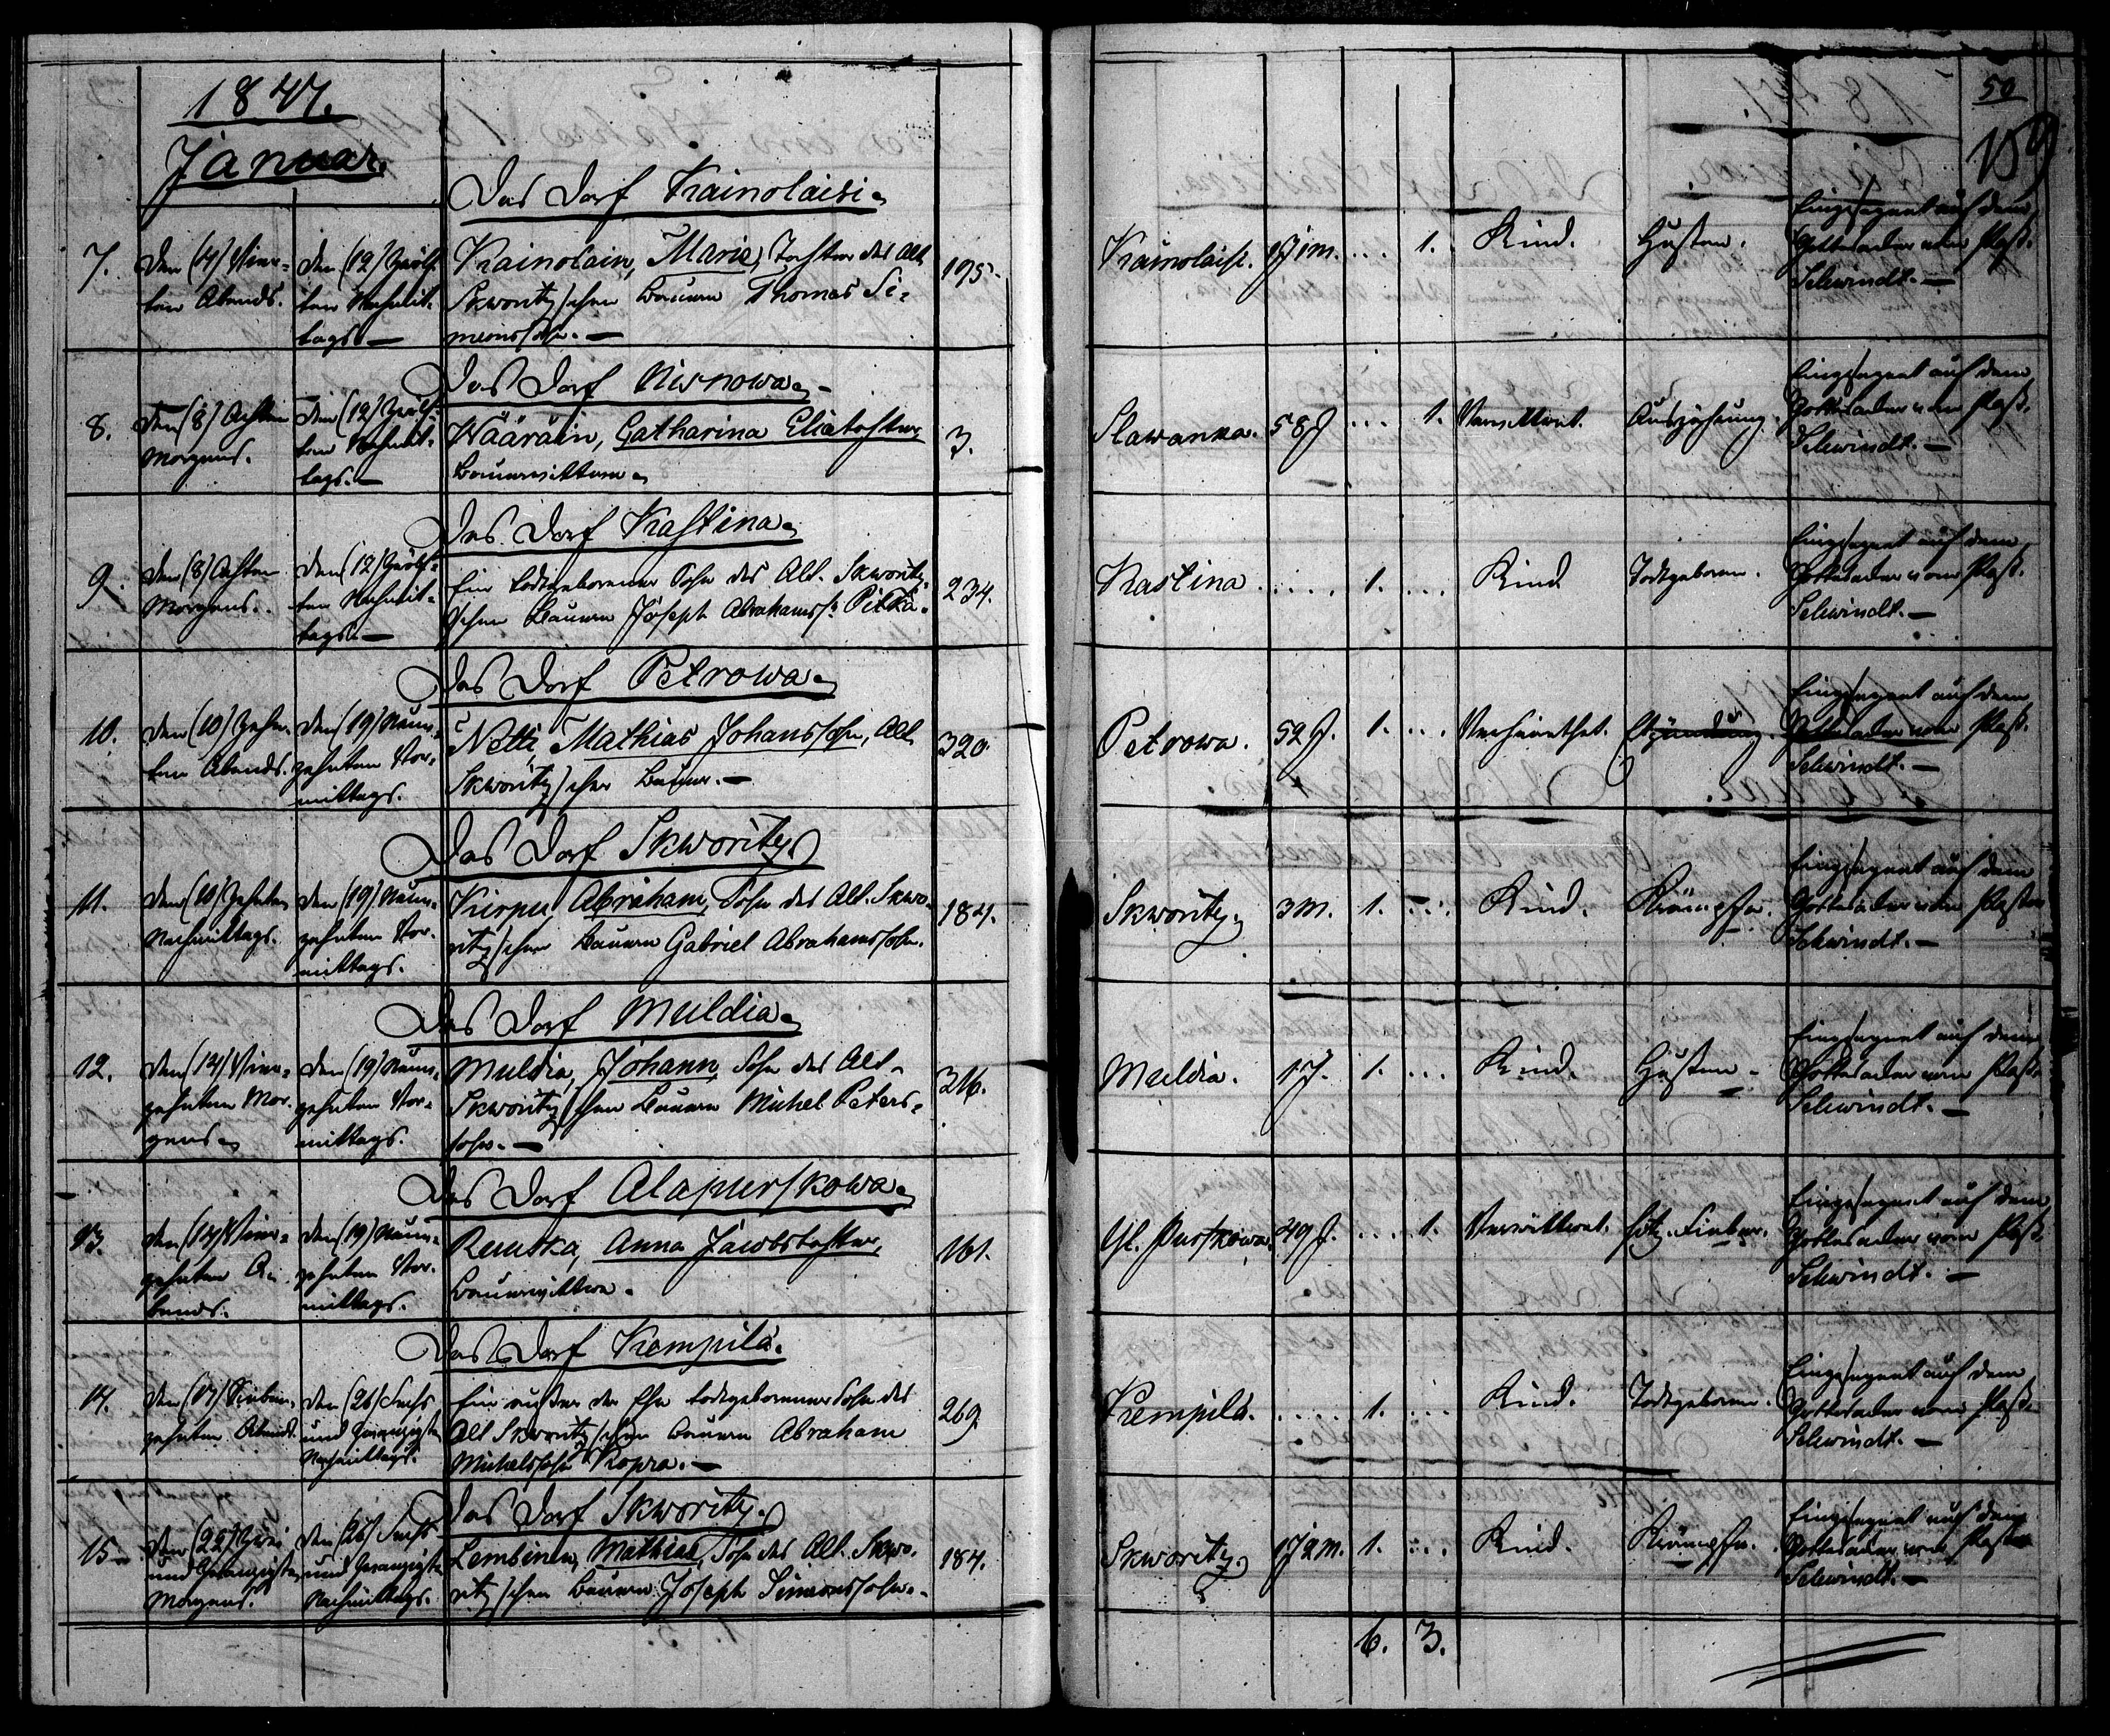 1847.
Januar.
Das Dorf Kainolaisi.
7. Den (4) Vier- ten Abends. Den (12) Zwölf- ten Nachmit- tags.—
Kainolain, Marie, Tochter des Alt
Skworitz'schen Bauern Thomas Si-
meonssohn.—
195.
Kainolaisi. 1J 1M. ... 1. Kind. Husten.
Eingesegnet auf dem
Gottesacker vom Past.
Schwindt.—
Das Dorf
8. Den (8) Achten Morgens. Den (12) Zwölf- ten Nachmit- tags.—
Wääräin, Catharina Eliastochter,
Bauerwittwe.
3.
Slawanka. 58J ... 1. Verwittwet. Auszehrung.
Eingesegnet auf dem
Gottesacker vom Past.
Schwindt.—
Das Dorf Kastina.
9. Den (8) Achten Morgens. Den (12) Zwölf- ten Nachmit- tags.—
Ein todtgeborener Sohn des Alt. Skworitz-
schen Bauern Joseph Abrahamss: Pitkä.
234.
Kastina ..... 1. ... Kind Todtgeboren.
Eingesegnet auf dem
Gottesacker vom Past.
Schwindt.—
Das Dorf Petrowa.
10. Den (10) Zehn- ten Abends. Den (19) Neun- zehnten Vor- mittags.
Mathias Johanssohn, Alt
Skworitz'scher Bauer.—
320.
Petrowa. 52J. 1. ... Verheirathet.
Eingesegnet auf dem
Gottesacker vom Past.
Schwindt.—
Das Dorf Skworitz.
11. Den (10) Zehnten Nachmittags. Den (19) Neun- zehnten Vor- mittags.
Kirpu, Abraham, Sohn des Alt. Skwo-
ritz'schen Bauern Gabriel Abrahamssohn.
184.
Skworitz. 3M. 1. ... Kind. Krämpfe.
Eingesegnet auf dem
Gottesacker vom Pastor
Schwindt.—
Das Dorf Muldia.
12. Den (14) Vier- zehnten Mor- gens. Den (19) Neun- zehnten Vor- mittags.
Muldia, Johann, Sohn des Alt-
Skworitz'schen Bauern Michel Peters-
sohn.—
316.
Muldia. 1J. 1. ... Kind. Husten.
Eingesegnet auf dem
Gottesacker vom Past.
Schwindt.—
Das Dorf Alapurskowa.
13. Den (14) Vier- zehnten A- bends. Den (19) Neun- zehnten Vor- mittags.
Anna Jacobstochter,
Bauerwittwe.
161.
Purskowa. 49J. ... 1. Verwittwet. Fieber.
Eingesegnet auf dem
Gottesacker vom Past.
Schwindt.—
Das Dorf Kempilä.
14. Den (17) Sieben- zehnten Abends. Den (26) Sechs und Zwanzigsten Nachmittags.
Ein ausser der Ehe todtgeborener Sohn des
Alt Skworitz'schen Bauern Abraham
Michelssohn Kopra.—
269.
Kempilä. ..... 1. ... Kind. Todtgeboren.
Eingesegnet auf dem
Gottesacker vom Past.
Schwindt.—
Das Dorf Skworitz.
15. Den (22) Zwei und Zwanzigsten Morgens. Den (26) Sechs und Zwanzigsten Nachmittags.
Lembinen, Mathias, Sohn des Alt. Skwo-
ritz'schen Bauern Joseph Simonssohn.
184.
Skworitz. 1J 2M. 1. ... Kind. Krämpfe.
Eingesegnet auf dem
Gottesacker vom Pastor
Schwindt.—
6. 3.
50
159